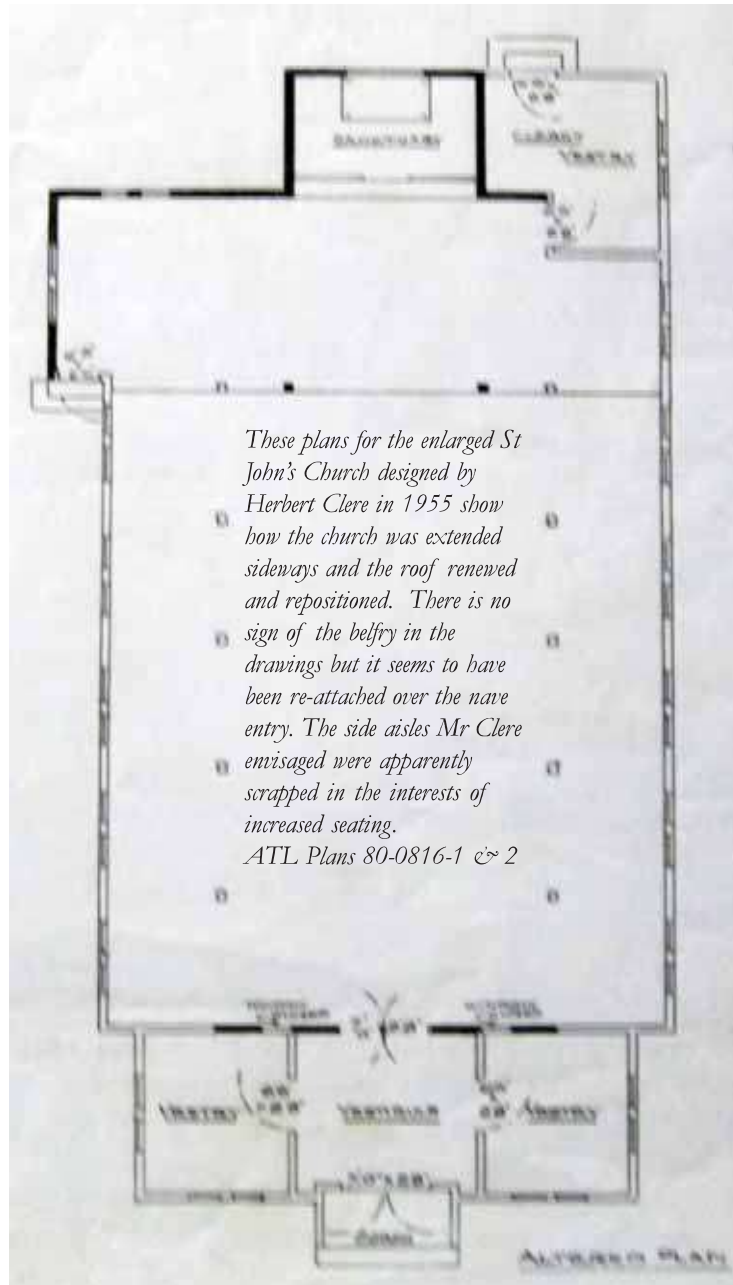 SANCTUARY
CLERGY
VESTRY
These plans for the enlarged St
John's Church designed by
Herbert Clere in 1955 show
how the church was extended
sideways and the roof renewed
and repositioned. There is no
sign of the belfry in the
drawings but it seems to have
been re-attached over the nave
entry. The side aisles Mr Clere
envisaged were apparently
scrapped in the interests of
increased seating.
ATL Plans 80-0816-1 & 2
VESTRY VESTIBULE VESTRY
PORCH
ALTERED PLAN